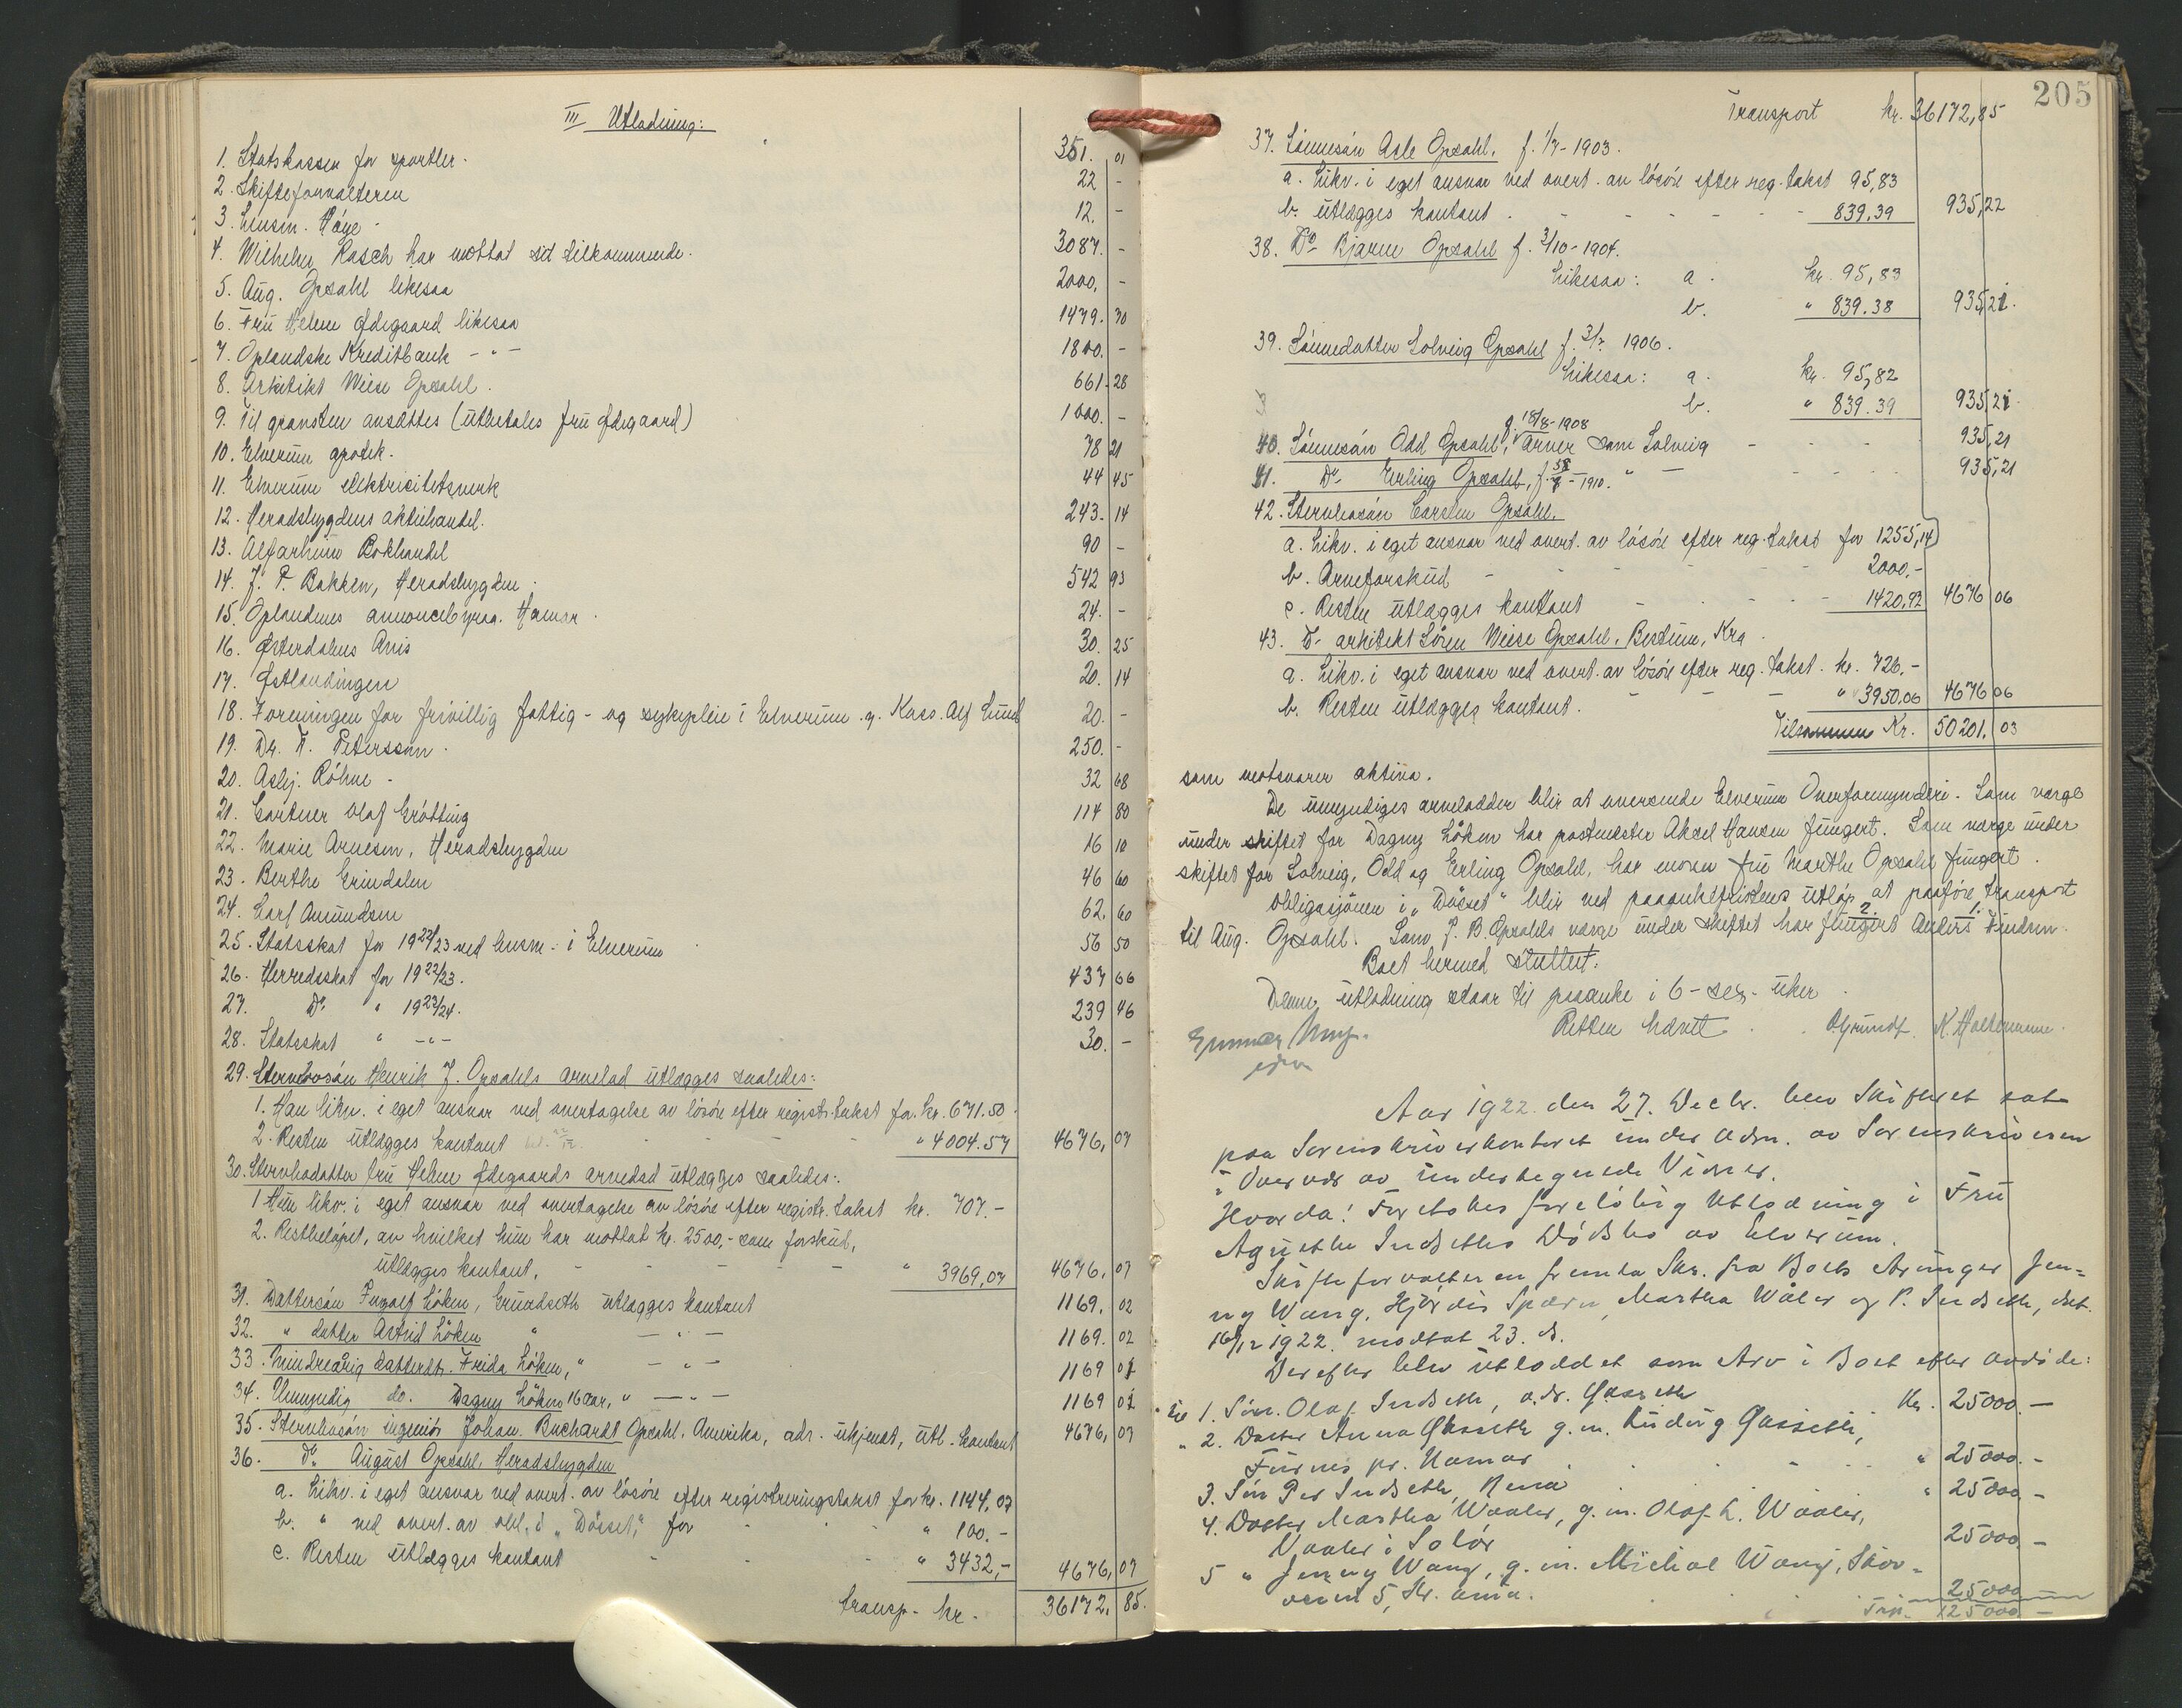 III Utlodning:
1. Statskassen for sportler. 351. 01
2. Skifteforvalteren 22 -
3. Lensm. Høye - 12. -
4. Wilhelm Rasch har mottat sit tilkommende. 3087. -
5. Aug. Opsahl likesaa 2000. -
6. Fru Helene Ødegaard likesaa 1479. 30
7. Oplandske Kreditbank - " - 1800. -
8. Arkitekt Wiese Opsahl. 661. 28
9. Til gravsten avsættes (utbetales fru Ødegaard) 1000. -
10. Elverum apotek. 78 21
11. Elverum elektricitetsverk 44 45
12. Heradsbygdens aktiehandel. 243. 14
13. Alfarheim Bokhandel 90 -
14. J. P. Bakken, Heradsbygden. 542 93
15. Oplandenes annoncebyraa. Hamar. 24. -
16. Østerdalens Avis 30. 25
17. Østlendingen 20. 14
18. Foreningen for frivillig fattig- og sykepleie i Elverum. v. Kass. Alf Lund 20. -
19. Dr. K. Peterssøn. 250. -
20. Asbj. Röhne - 32 68
21. Gartner Olaf Grötting 114 80
22. Marie Arnesen, Heradsbygden 16 10
23. Berthe Grindalen 46 60
24. Carl Amundsen 62. 60
25. Statsskat for 1922/23 ved lensm. i Elverum 56 50
26. Herredsskat for 1922/23. 437 66
27. Do " 1923/24. 239 46
28. Statsskat " - " - 30. -
29. Stervbosön Henrik J. Opsahls arvelod utlægges saaledes:
1. Han likv. i eget ansvar ved overtagelse av lösöre efter registr. takst for. kr. 671.50.
2. Resten utlægges kontant " 4004.57 4676, 07
30. Stervbodatter fru Helene Ødegaards arvelod utlægges saaledes:.
1 Hun likv. i eget ansvar ved overtagelse av lösöre efter registr. takst kr. 707.-
2. Restbelöpet, av hvilket hun har mottat kr. 2500,- som forskud,
utlægges kontant. " 3969,07 4676. 07
31. Dattersön Ingolf Löken, Grundseth utlægges kontant 1169. 02
32. " datter Astrid Löken " - " - 1169. 02
33. Mindreaarig datterdtr. Frida Löken, " - " - 1169 01
34. Umyndig do. Dagny Löken 16 aar, " - " - 1169 01
35. Stervbosön ingeniör Johan Buchardt Opsahl, Amerika, adr. ukjendt, utl. kontant 4676, 07
36. Do August Opsahl, Heradsbygden
a. Likv. i eget ansvar ved overt. av lösöre efter registreringstakst for kr. 1144,07
b. " ved overt. av obl. i "Dösset," for " 100.-
c. Resten utlægges kontant " 3432,- 4676, 07
transp. kr. 36172, 85.
205
Transport kr. 36172,85
37. Sönnesön Asle Opsahl, f. 1/7-1903.
a. Likv. i eget ansvar ved overt. av lösöre efter reg. takst 95,83
b. utlægges kontant 839.39 935,22
38. Do Bjarne Opsahl f. 3/10-1904.
Likesaa: a. kr. 95,83
b. " 839.38 935,21.
39. Sönnedatter Solveig Opsahl f. 3/7 1906.
Likesaa: a. kr. 95,82
b. " 839.39 935,21.
f. 18/8-1908
40. Sönnesön Odd Opsahl, arver som Solveig 935,21
41. Do Erling Opsahl, f. - 1910. " - 935,21
42. Stervbosön Carsten Opsahl.
a. Likv. i eget ansvar ved overt. av lösöre efter reg. takst for 1255,14
b. Arveforskud 2000.-
c. Resten utlægges kontant 1420.92 4676 06
43. Do arkitekt Sören Wiese Opsahl, Bestum, Kra.
a. Likv. i eget ansvar ved overt. av lösöre efter reg. takst. kr. 726.-
b. Resten utlægges kontant. " 3950.06 4676 06
Tilsammen Kr. 50201. 03
som motsvarer aktiva.
De umyndiges arvelodder blir at oversende Elverum Overformynderi. Som verge
under skiftet for Dagny Löken har postmester Aksel Hansen fungert. Som verge under
skiftet for Solveig, Odd og Erling Opsahl, har moren fru Marthe Opsahl fungert.
Obligasjonen i "Dösset" blir ved paaankefristens utløp at paaføre transport
til Aug. Opsahl. Som J. B. Opsahls verge under skiftet har fungert Anders Findsen.
Boet hermed sluttet.
Denne utlodning staar til paaanke i 6 - sex - uker.
Retten hævet. OGrundt. K. Holtermann.
Aar 1922 den 27. Decbr. blev Skifteret sat
paa Sorenskriverkontoret under Adm. av Sorenskriveren
i Overvær av undertegnede Vidner.
Hvorda: Foretokes foreløbig Utlodning i Fru
Agnethe Indseths Dødsbo av Elverum.
Skifteforvalteren fremla Skr. fra Boets Arvinger Jen-
ny Wang, Hjørdis Spærn, Martha Wåler og P. Indseth, dat.
16/12 1922 modtat 23. ds.
Derefter blev utloddet som Arv i Boet efter avdøde:
til 1. Søn Olaf Indseth, adr. Gaaseth Kr. 25000.-
" 2. Datter Anna Gaaseth g. m. Ludvig Gaaseth,
Furnes pr. Hamar " 25000.-
3. Søn Per Indseth, Rena " 25000.-
4. Datter Martha Waaler, g. m. Olaf L. Waaler,
Vaaler i Solør 25000.-
5 " Jenny Wang, g. m. Michael Wang, Skov-
veien 5, Kr.ania. 25000
Trp. 125000 -